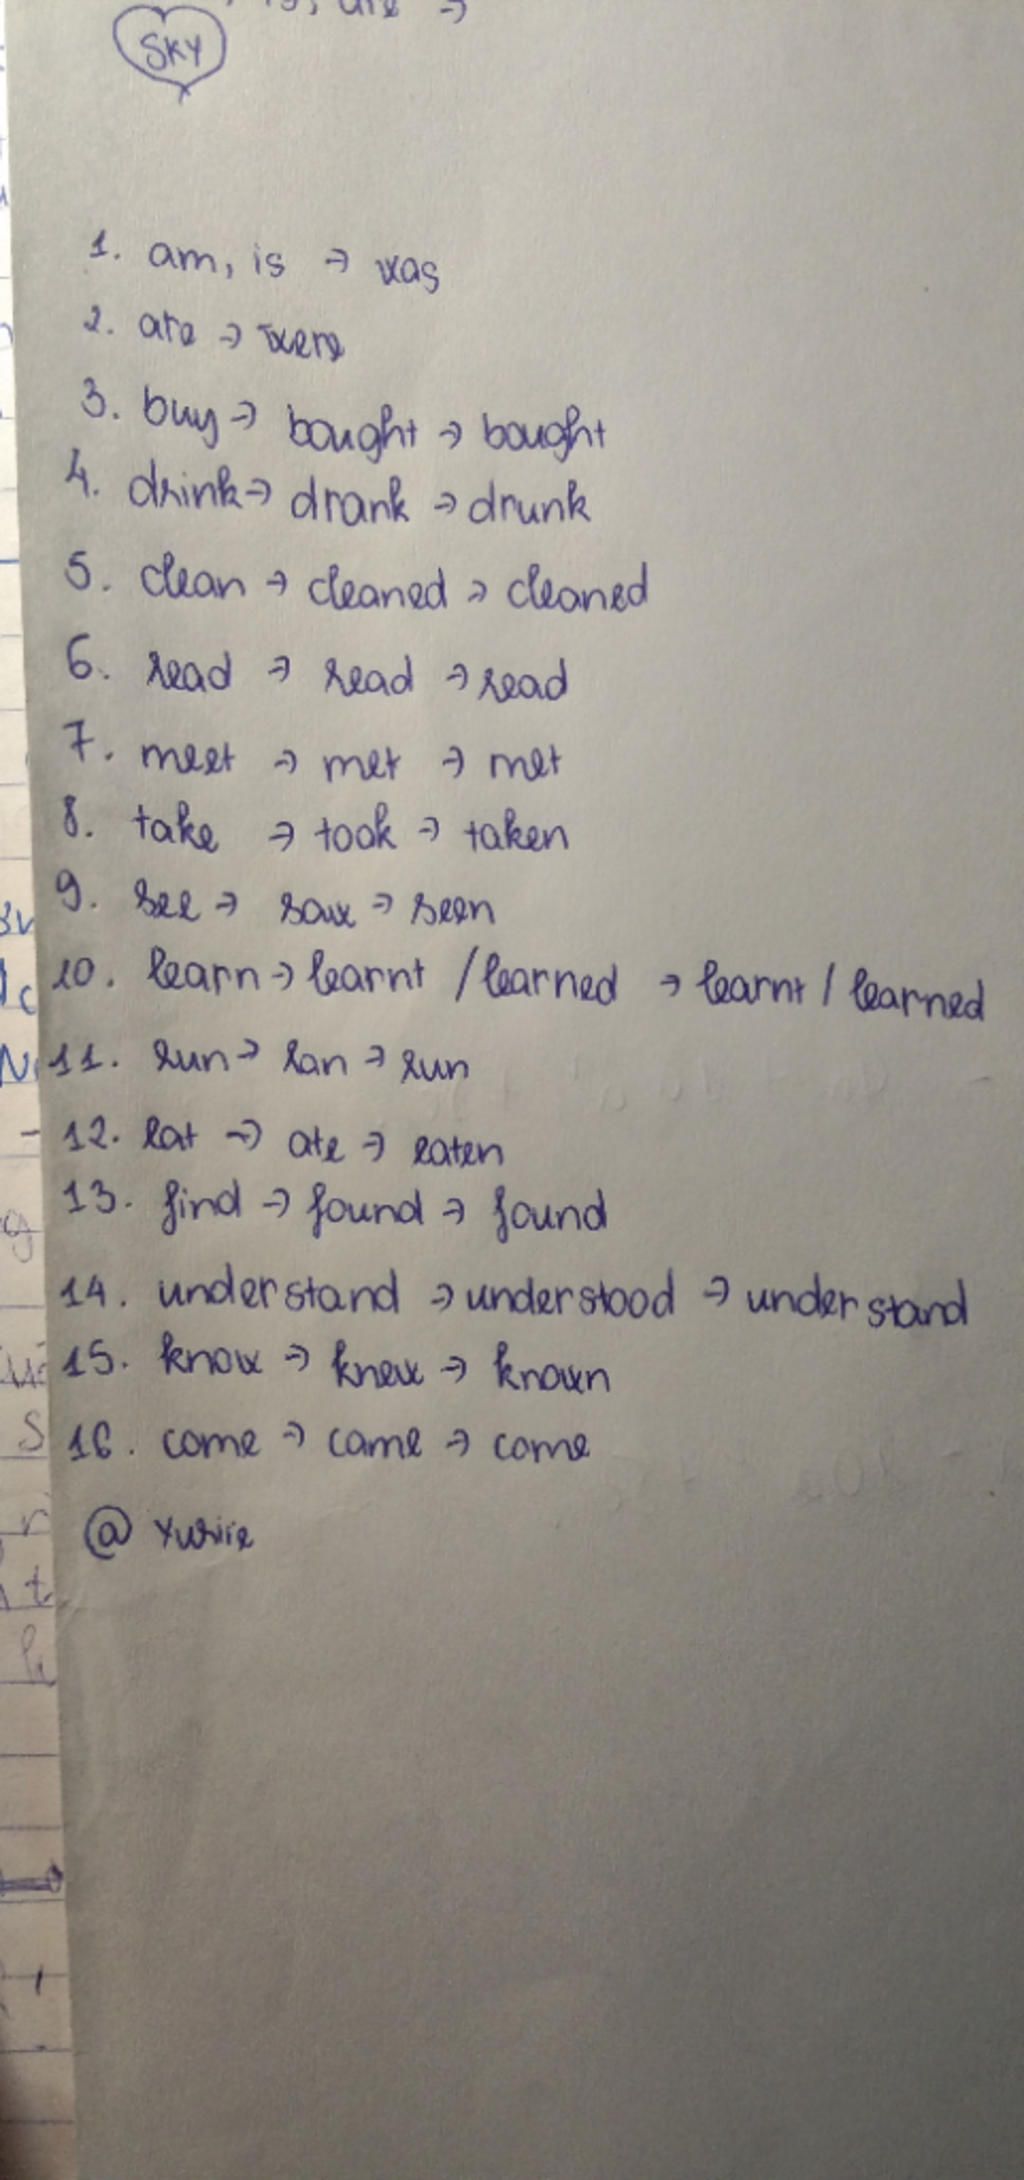 is, are →
SKY
1. am, is → was
2. are → were
3. buy → bought → bought
4. drink → drank → drunk
5. clean → cleaned → cleaned
6. read → read → read
7. meet → met → met
8. take → took → taken
9. see → saw → seen
10. learn → learnt / learned → learnt / learned
11. run → ran → run
12. eat → ate → eaten
13. find → found → found
14. understand → understood → understand
15. know → knew → known
16. come → came → come